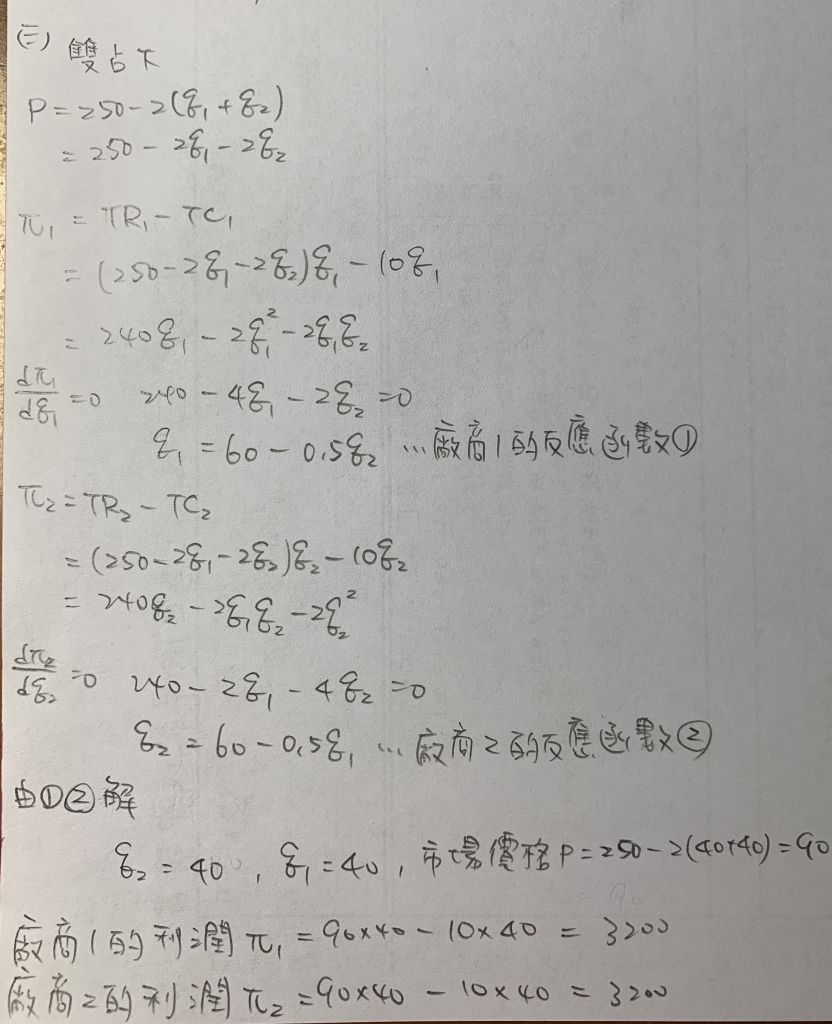 (三) 雙占下
P = 250 - 2(q₁ + q₂)
= 250 - 2q₁ - 2q₂
π₁ = TR₁ - TC₁
= (250 - 2q₁ - 2q₂)q₁ - 10q₁
= 240q₁ - 2q₁² - 2q₁q₂
dπ₁/dq₁ = 0 240 - 4q₁ - 2q₂ = 0
q₁ = 60 - 0.5q₂ ...廠商1的反應函數①
π₂ = TR₂ - TC₂
= (250 - 2q₁ - 2q₂)q₂ - 10q₂
= 240q₂ - 2q₁q₂ - 2q₂²
dπ₂/dq₂ = 0 240 - 2q₁ - 4q₂ = 0
q₂ = 60 - 0.5q₁ ...廠商2的反應函數②
由①②解
q₂ = 40, q₁ = 40, 市場價格P = 250 - 2(40+40) = 90
廠商1的利潤π₁ = 90×40 - 10×40 = 3200
廠商2的利潤π₂ = 90×40 - 10×40 = 3200